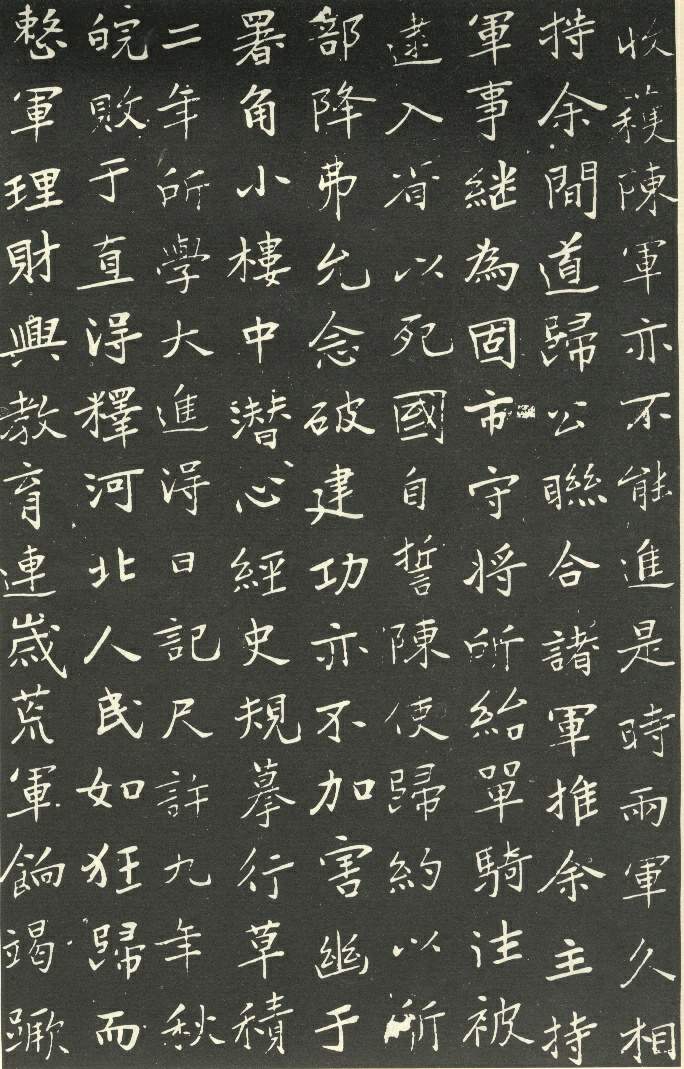 收穫陳軍亦不能進是時兩軍久相
持余間道歸公聯合諸軍推余主持
軍事繼為固市守將所紿單騎往被
逮入省以死國自誓陳使歸約以所
部降弗允念破建功亦不加害幽于
署角小樓中潛心經史規摹行草積
二年所學大進淂日記尺許九年秋
皖敗于直淂釋河北人民如狂歸而
整軍理財興教育連歲荒軍餉竭蹶